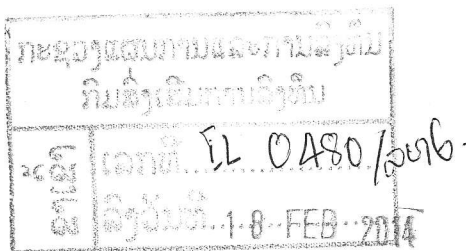 ກະຊວງແຜນການແລະການລົງທຶນ
ກົມສົ່ງເສີມການລົງທຶນ
ຂາເຂົ້າ
ເລກທີ...0480/
ລົງວັນທີ..18 FEB 2014